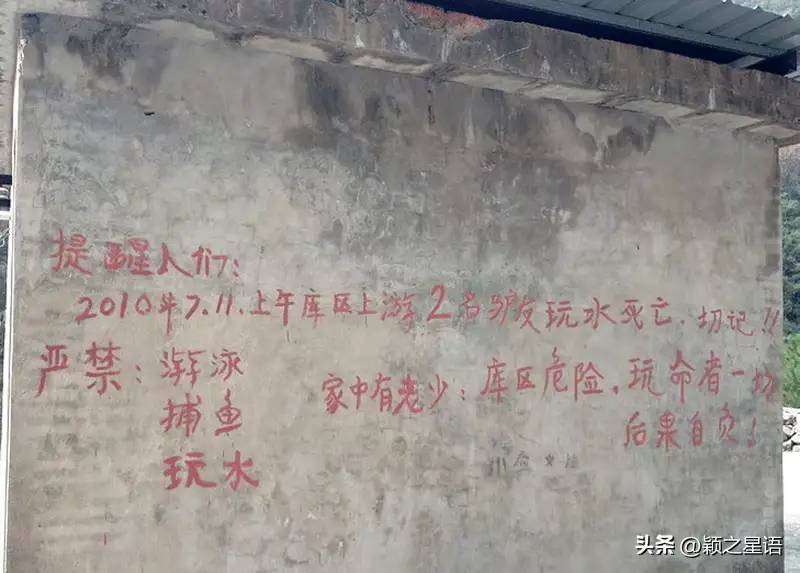 提醒人们:
2010年7.11.上午库区上游2名驴友玩水死亡.切记!!
严禁:游泳
捕鱼
玩水
家中有老少:库区危险.玩命者一切
后果自负!
头条 @颖之星语